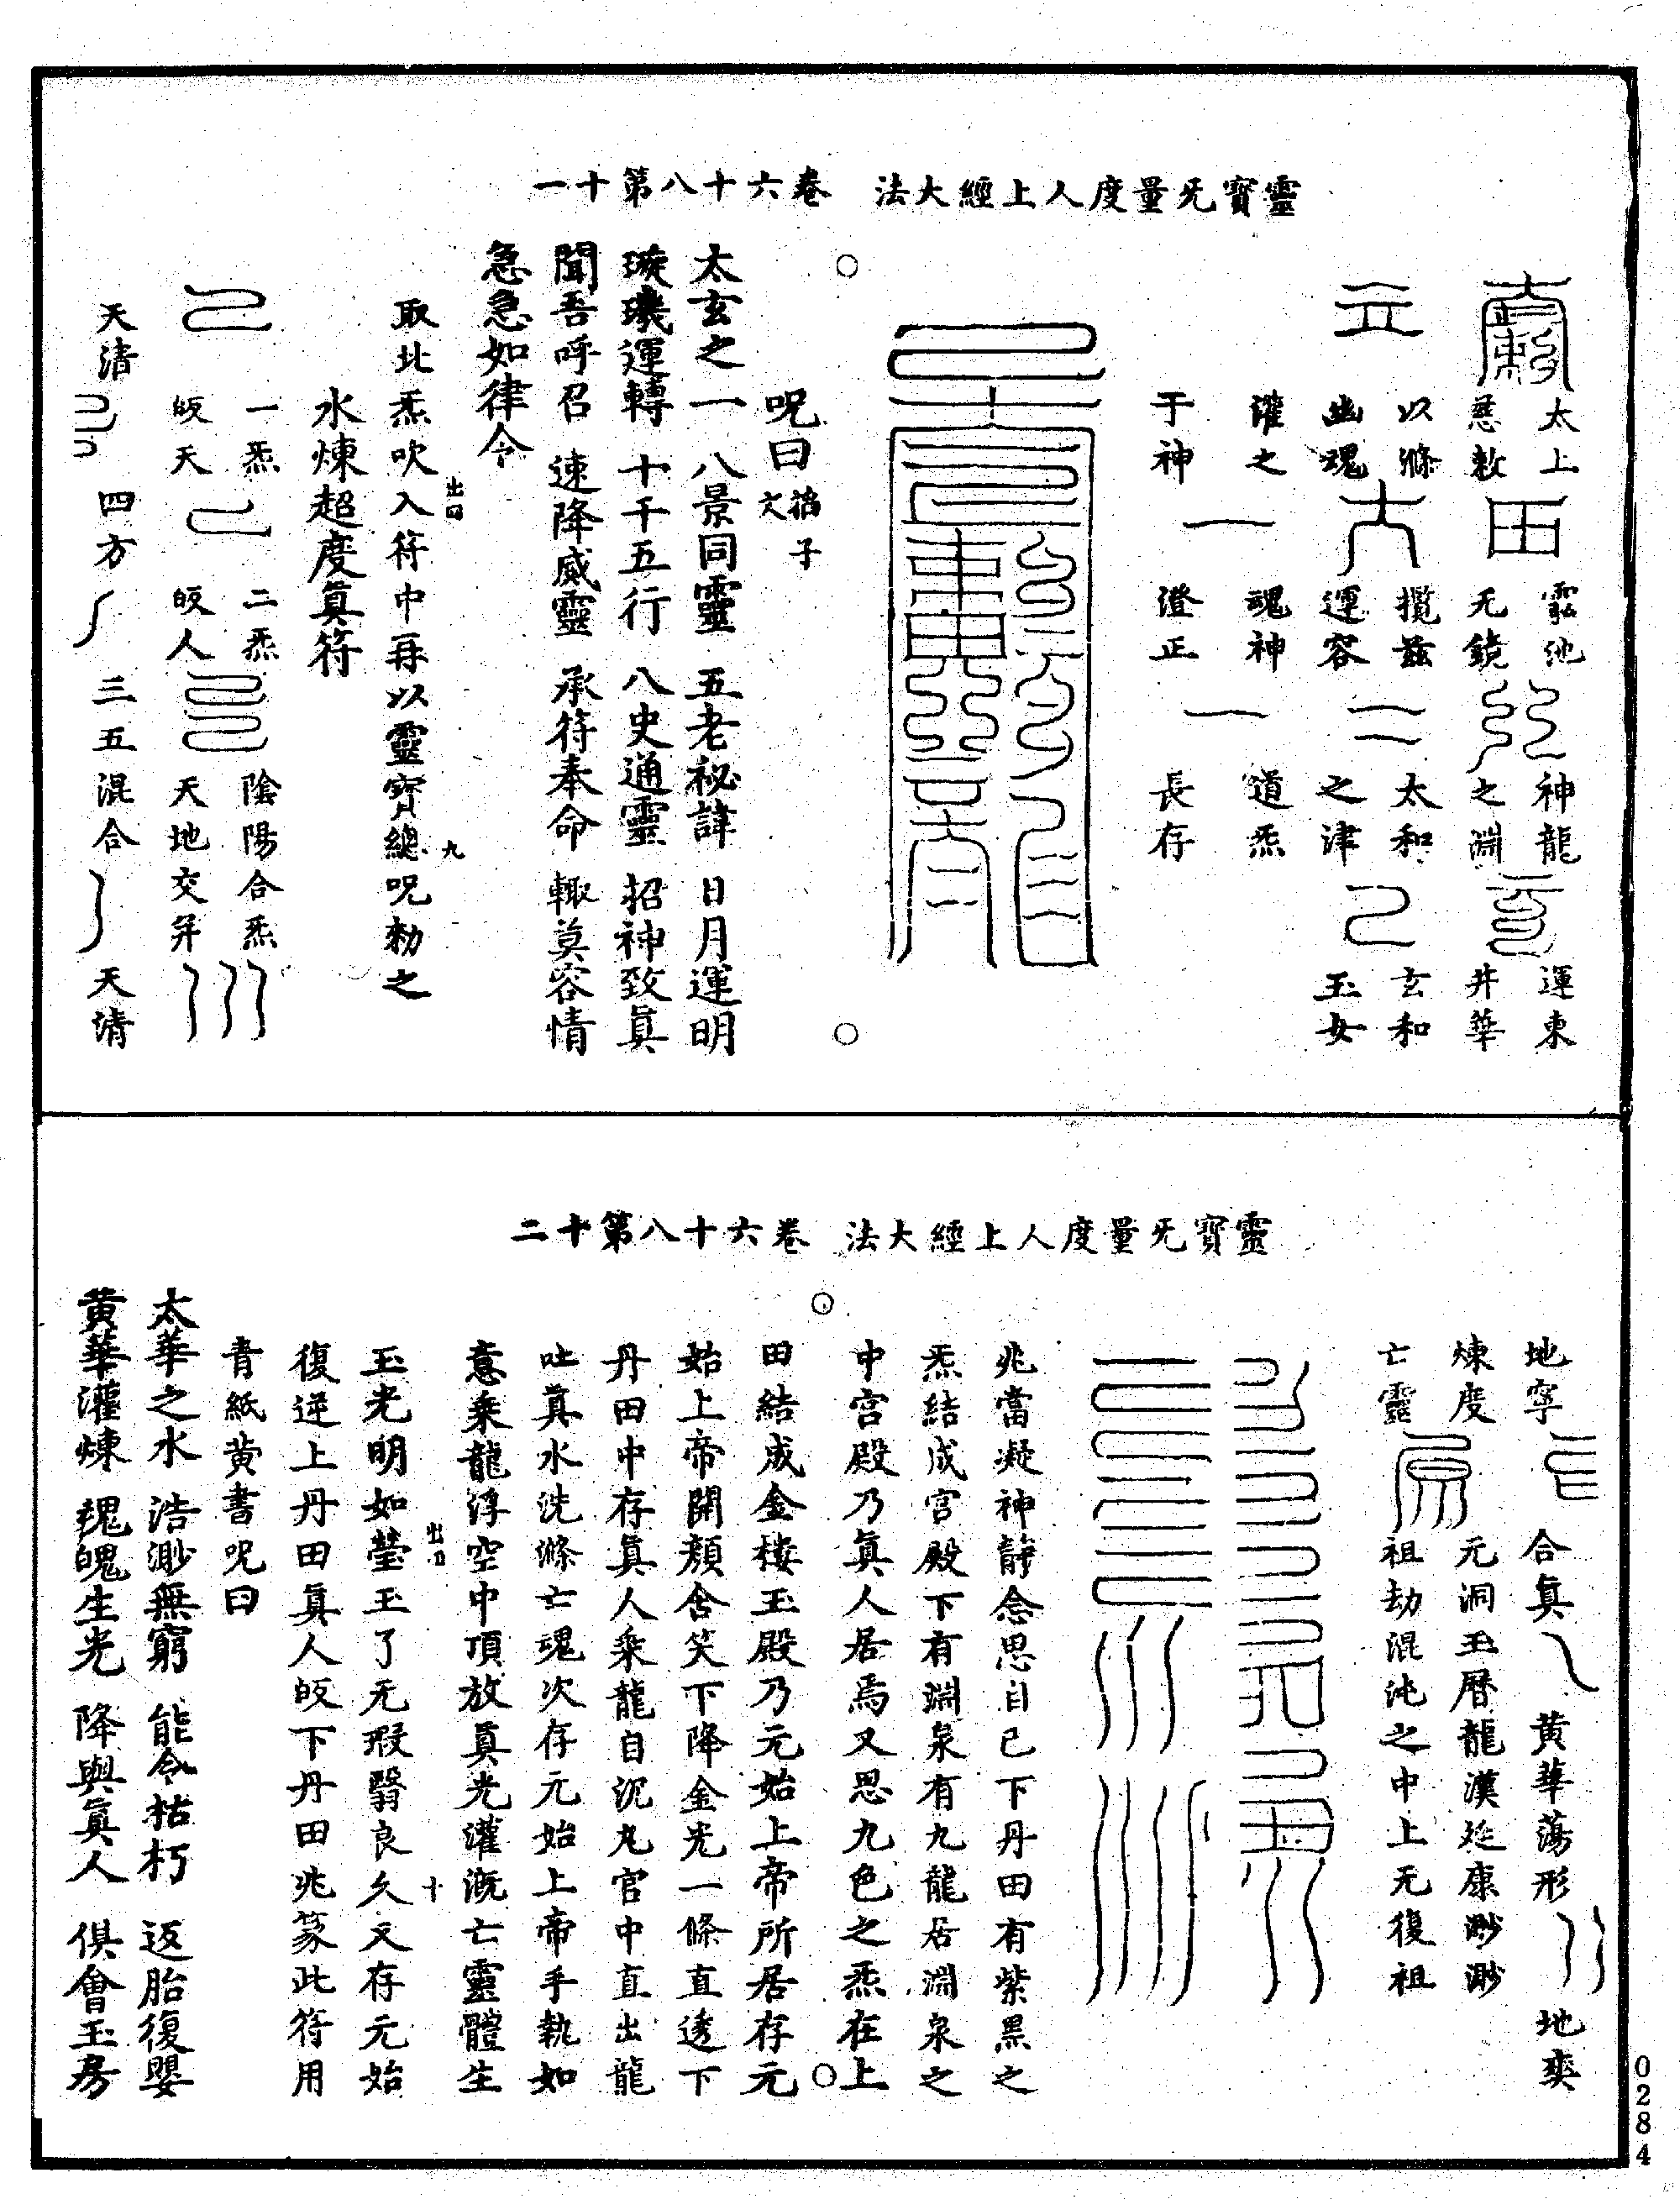 靈寶旡量度人上經大法　卷六十八第十一
太上　靈池　神龍　運東
慈敕　无鏡　之淵　井華
以滌　攬兹　太和　玄和
幽魂　運容　之津　玉女
灌之　魂神　道炁
于神　澄正　長存
呪曰　搯子文
太玄之一　八景同靈　五老祕諱　日月運明
璇璣運轉　十千五行　八史通靈　招神致眞
聞吾呼召　速降威靈　承符奉命　輙莫容情
急急如律令
出口
取北炁吹入符中再以靈寶總呪勑之
九
水煉超度眞符
一炁　二炁　陰陽合炁
皈天　皈人　天地交并
天清　四方　三五混合　天清
靈寶旡量度人上經大法　卷六十八第十二
地寧　合眞　黄華蕩形　地爽
煉度　元洞玉曆龍漢延康渺渺
亡靈　祖劫混沌之中上无復祖
兆當凝神静念思自己下丹田有紫黑之
炁結成宫殿下有淵泉有九龍居淵泉之
中宫殿乃眞人居焉又思九色之炁在上
田結成金楼玉殿乃元始上帝所居存元
始上帝開顏含笑下降金光一條直透下
丹田中存眞人乘龍自沉九宫中直出龍
吐眞水洗滌亡魂次存元始上帝手執如
意乘龍浮空中頂放眞光灌溉亡靈體生
出口
玉光明如瑩玉了无瑕翳良久又存元始
十
復逆上丹田眞人皈下丹田兆篆此符用
青紙黄書呪曰
太華之水　浩渺無窮　能令枯朽　返胎復嬰
黄華灌煉　魂魄生光　降與眞人　俱會玉房
0284